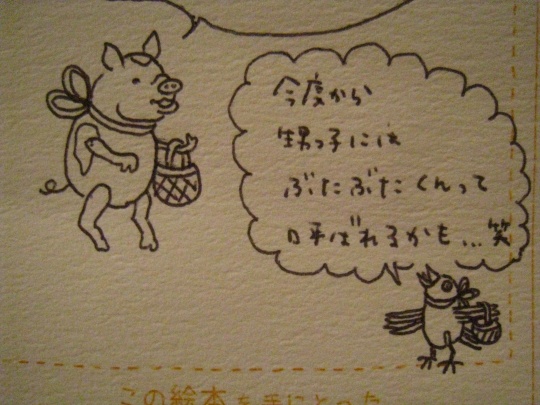 今度から
甥っ子には
ぶたぶたくんって
呼ばれるかも…笑
この絵本を手にとった